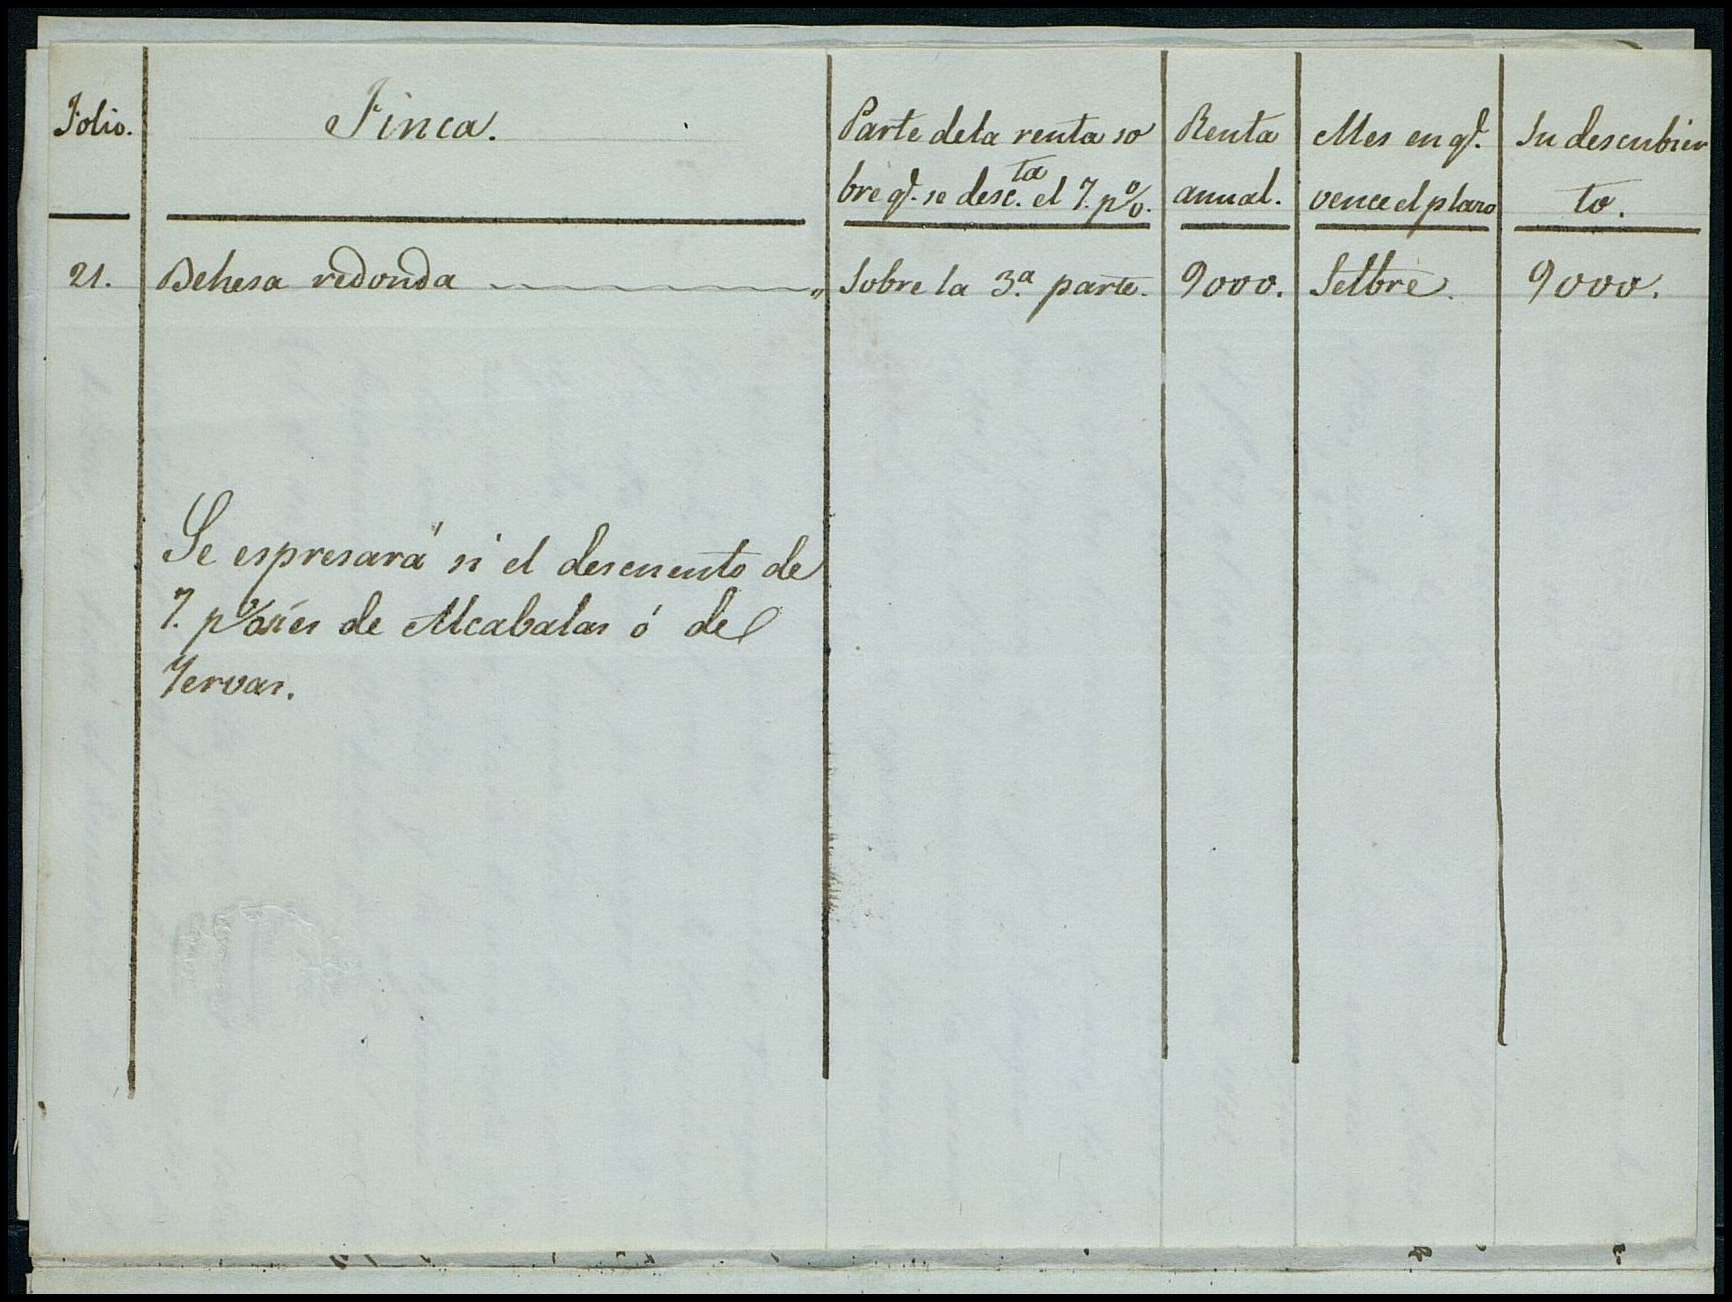 Folio.
Finca.
Parte de la renta so
bre qᵉ. se desc.ᵗᵃ el 7. p%.
Renta
anual.
Mes en qᵉ.
vence el plazo
Su descubier
to.
21. Dehesa redonda „ Sobre la 3.ª parte. 9000. Setbre. 9000.
Se espresará si el descuento de
7. p% es de Alcabalas ó de
Yervas.